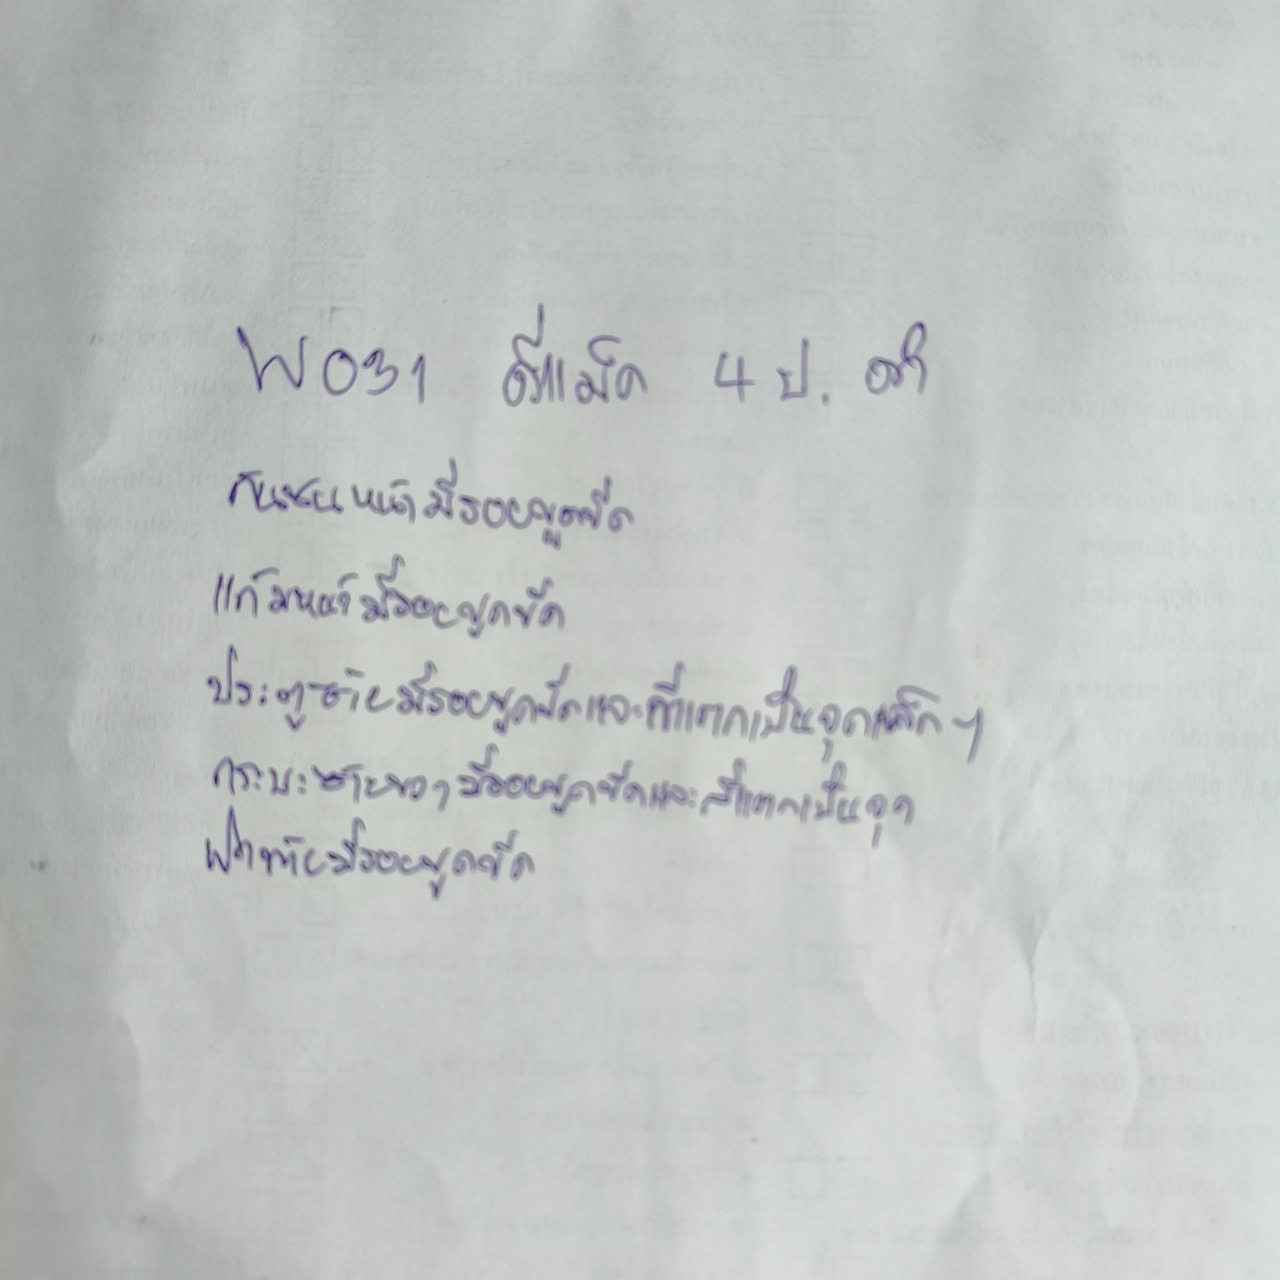 W031 ดีแม็ค 4 ป. ดำ
กันชนหน้ามีรอยขูดขีด
แก้มหน้ามีรอยขูดขีด
ประตูซ้ายมีรอยขูดขีดและสีแตกเป็นจุดเล็กๆ
กระบะซ้ายขวามีรอยขูดขีดและสีแตกเป็นจุด
ฝาท้ายมีรอยขูดขีด